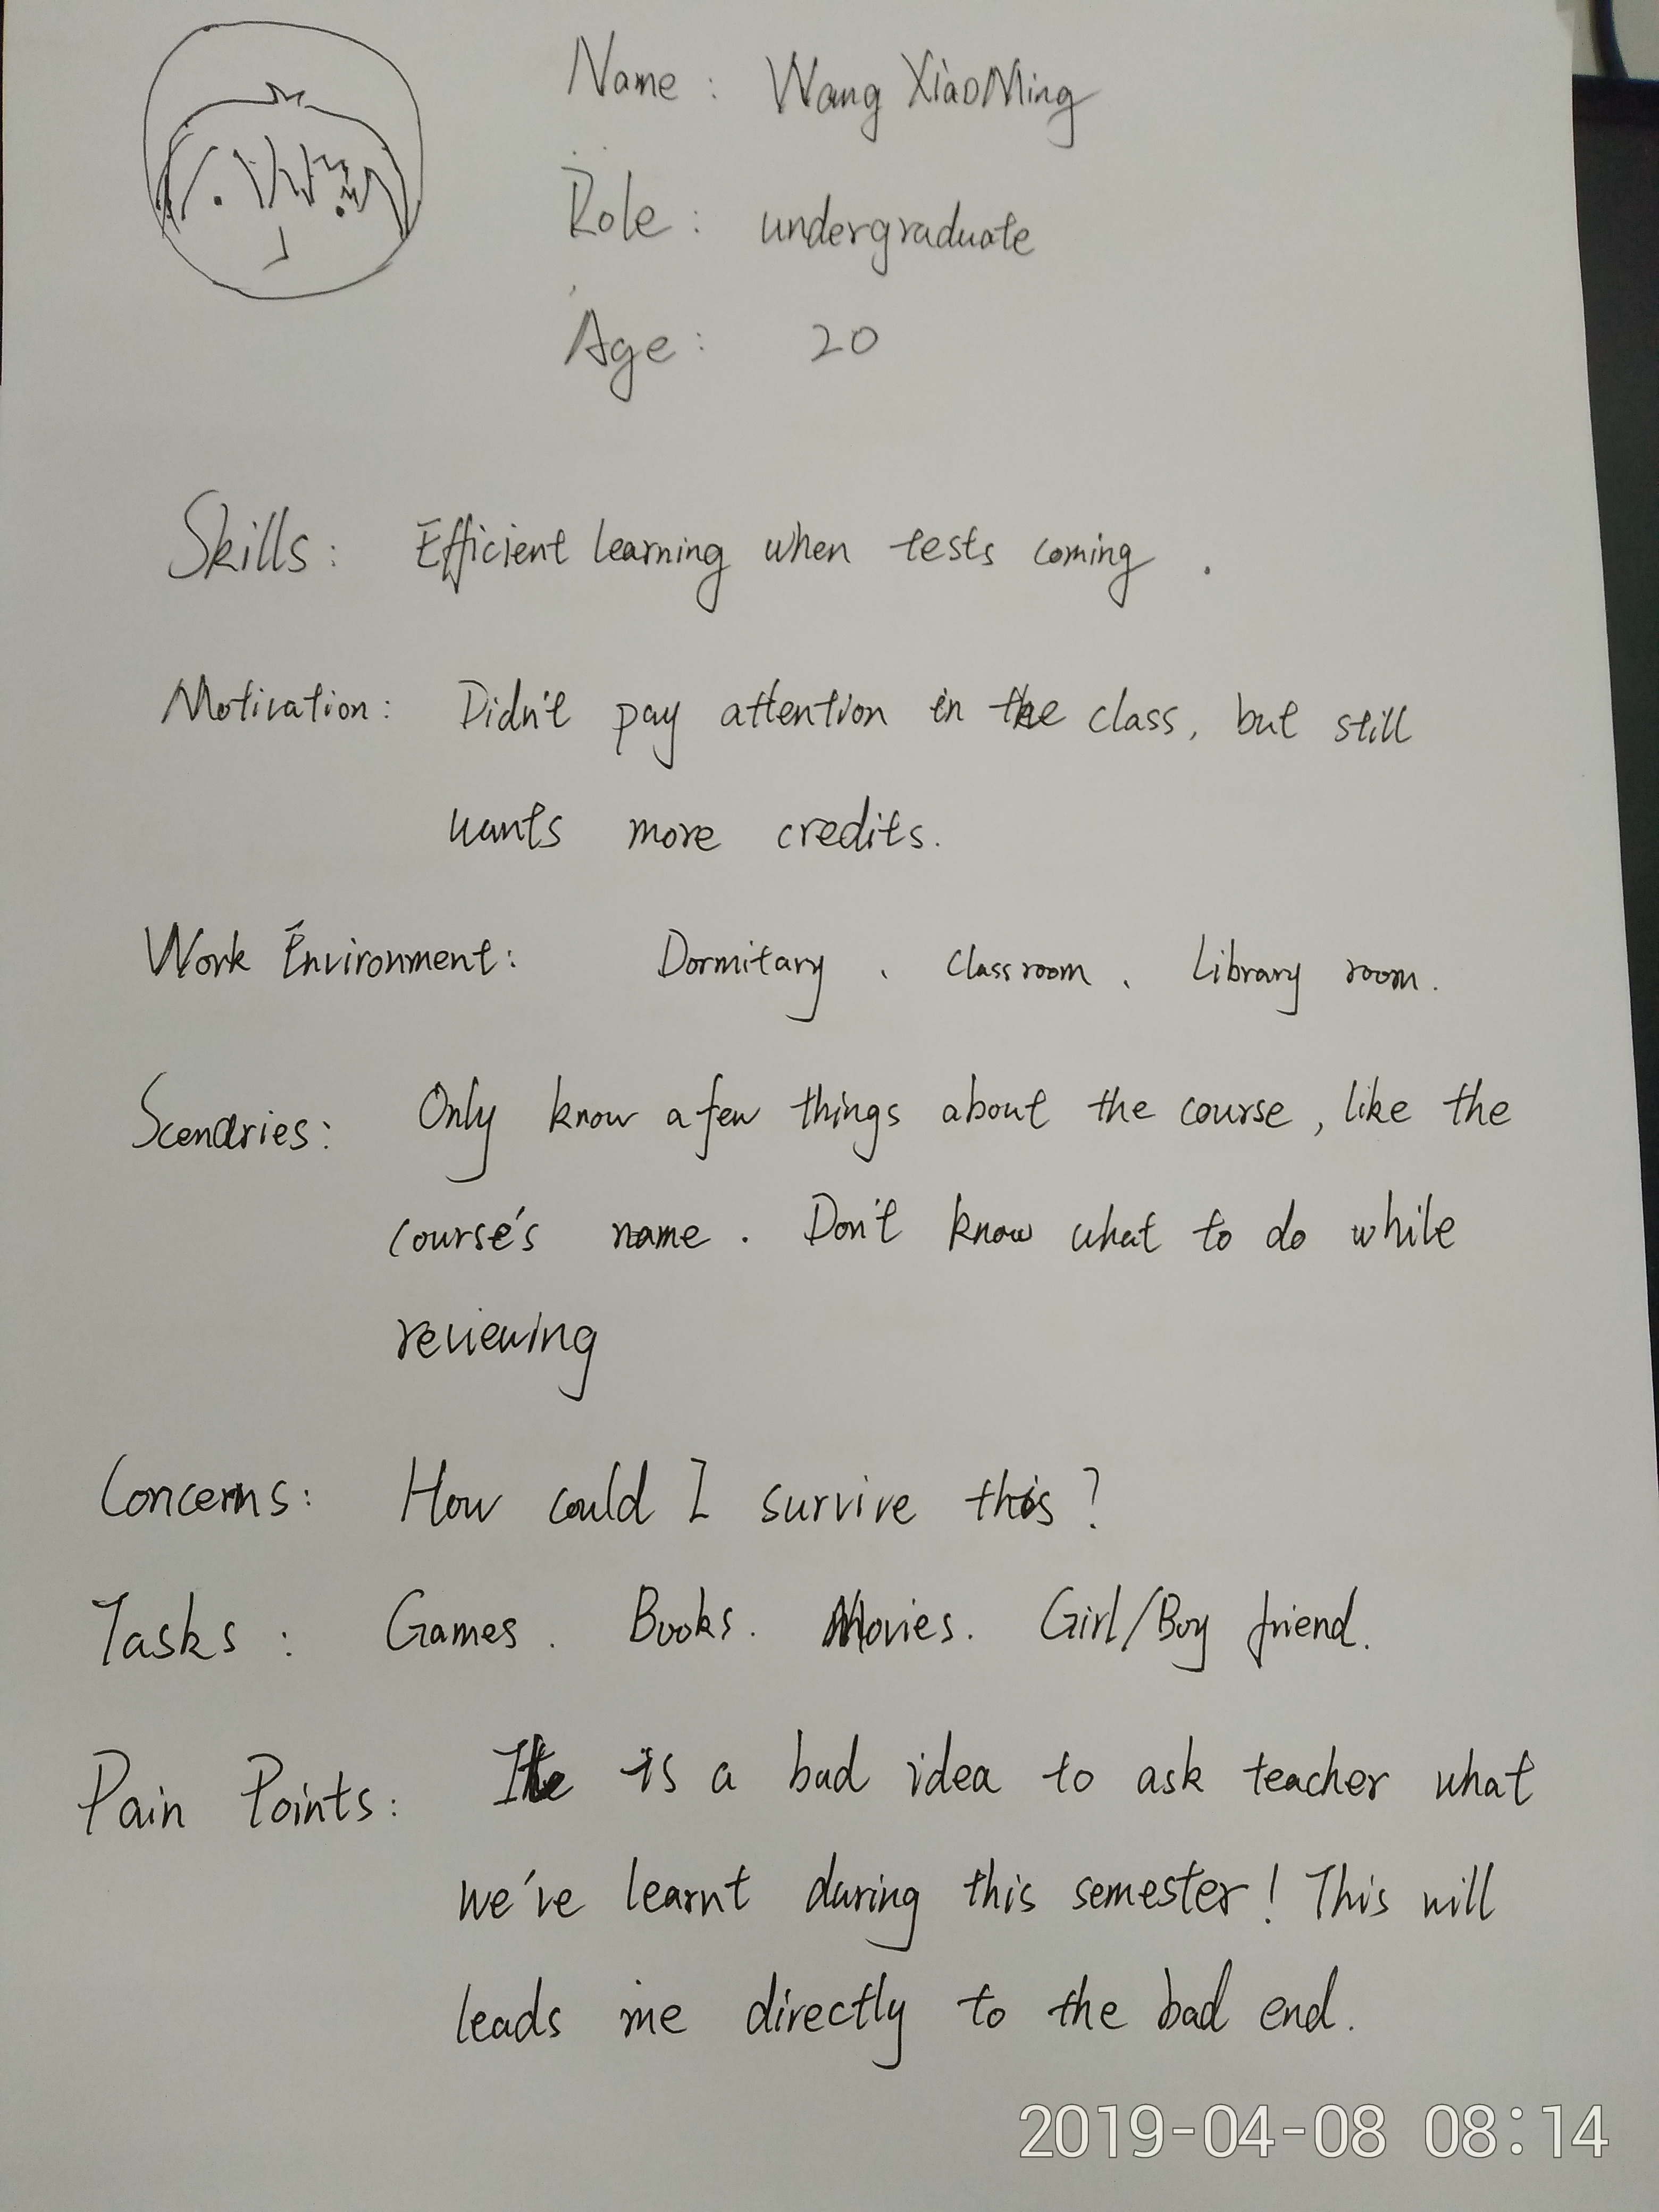 Name : Wang XiaoMing
Role : undergraduate
Age : 20
Skills : Efficient learning when tests coming .
Motivation : Didn't pay attention in the class, but still
wants more credits.
Work Environment : Dormitary 、 Classroom 、 Library room .
Scenaries : Only know a few things about the course , like the
course's name . Don't know what to do while
reviewing
Concerns : How could I survive this ?
Tasks : Games . Books . Movies . Girl/Boy friend .
Pain Points : It is a bad idea to ask teacher what
we've learnt during this semester ! This will
leads me directly to the bad end .
2019-04-08 08:14